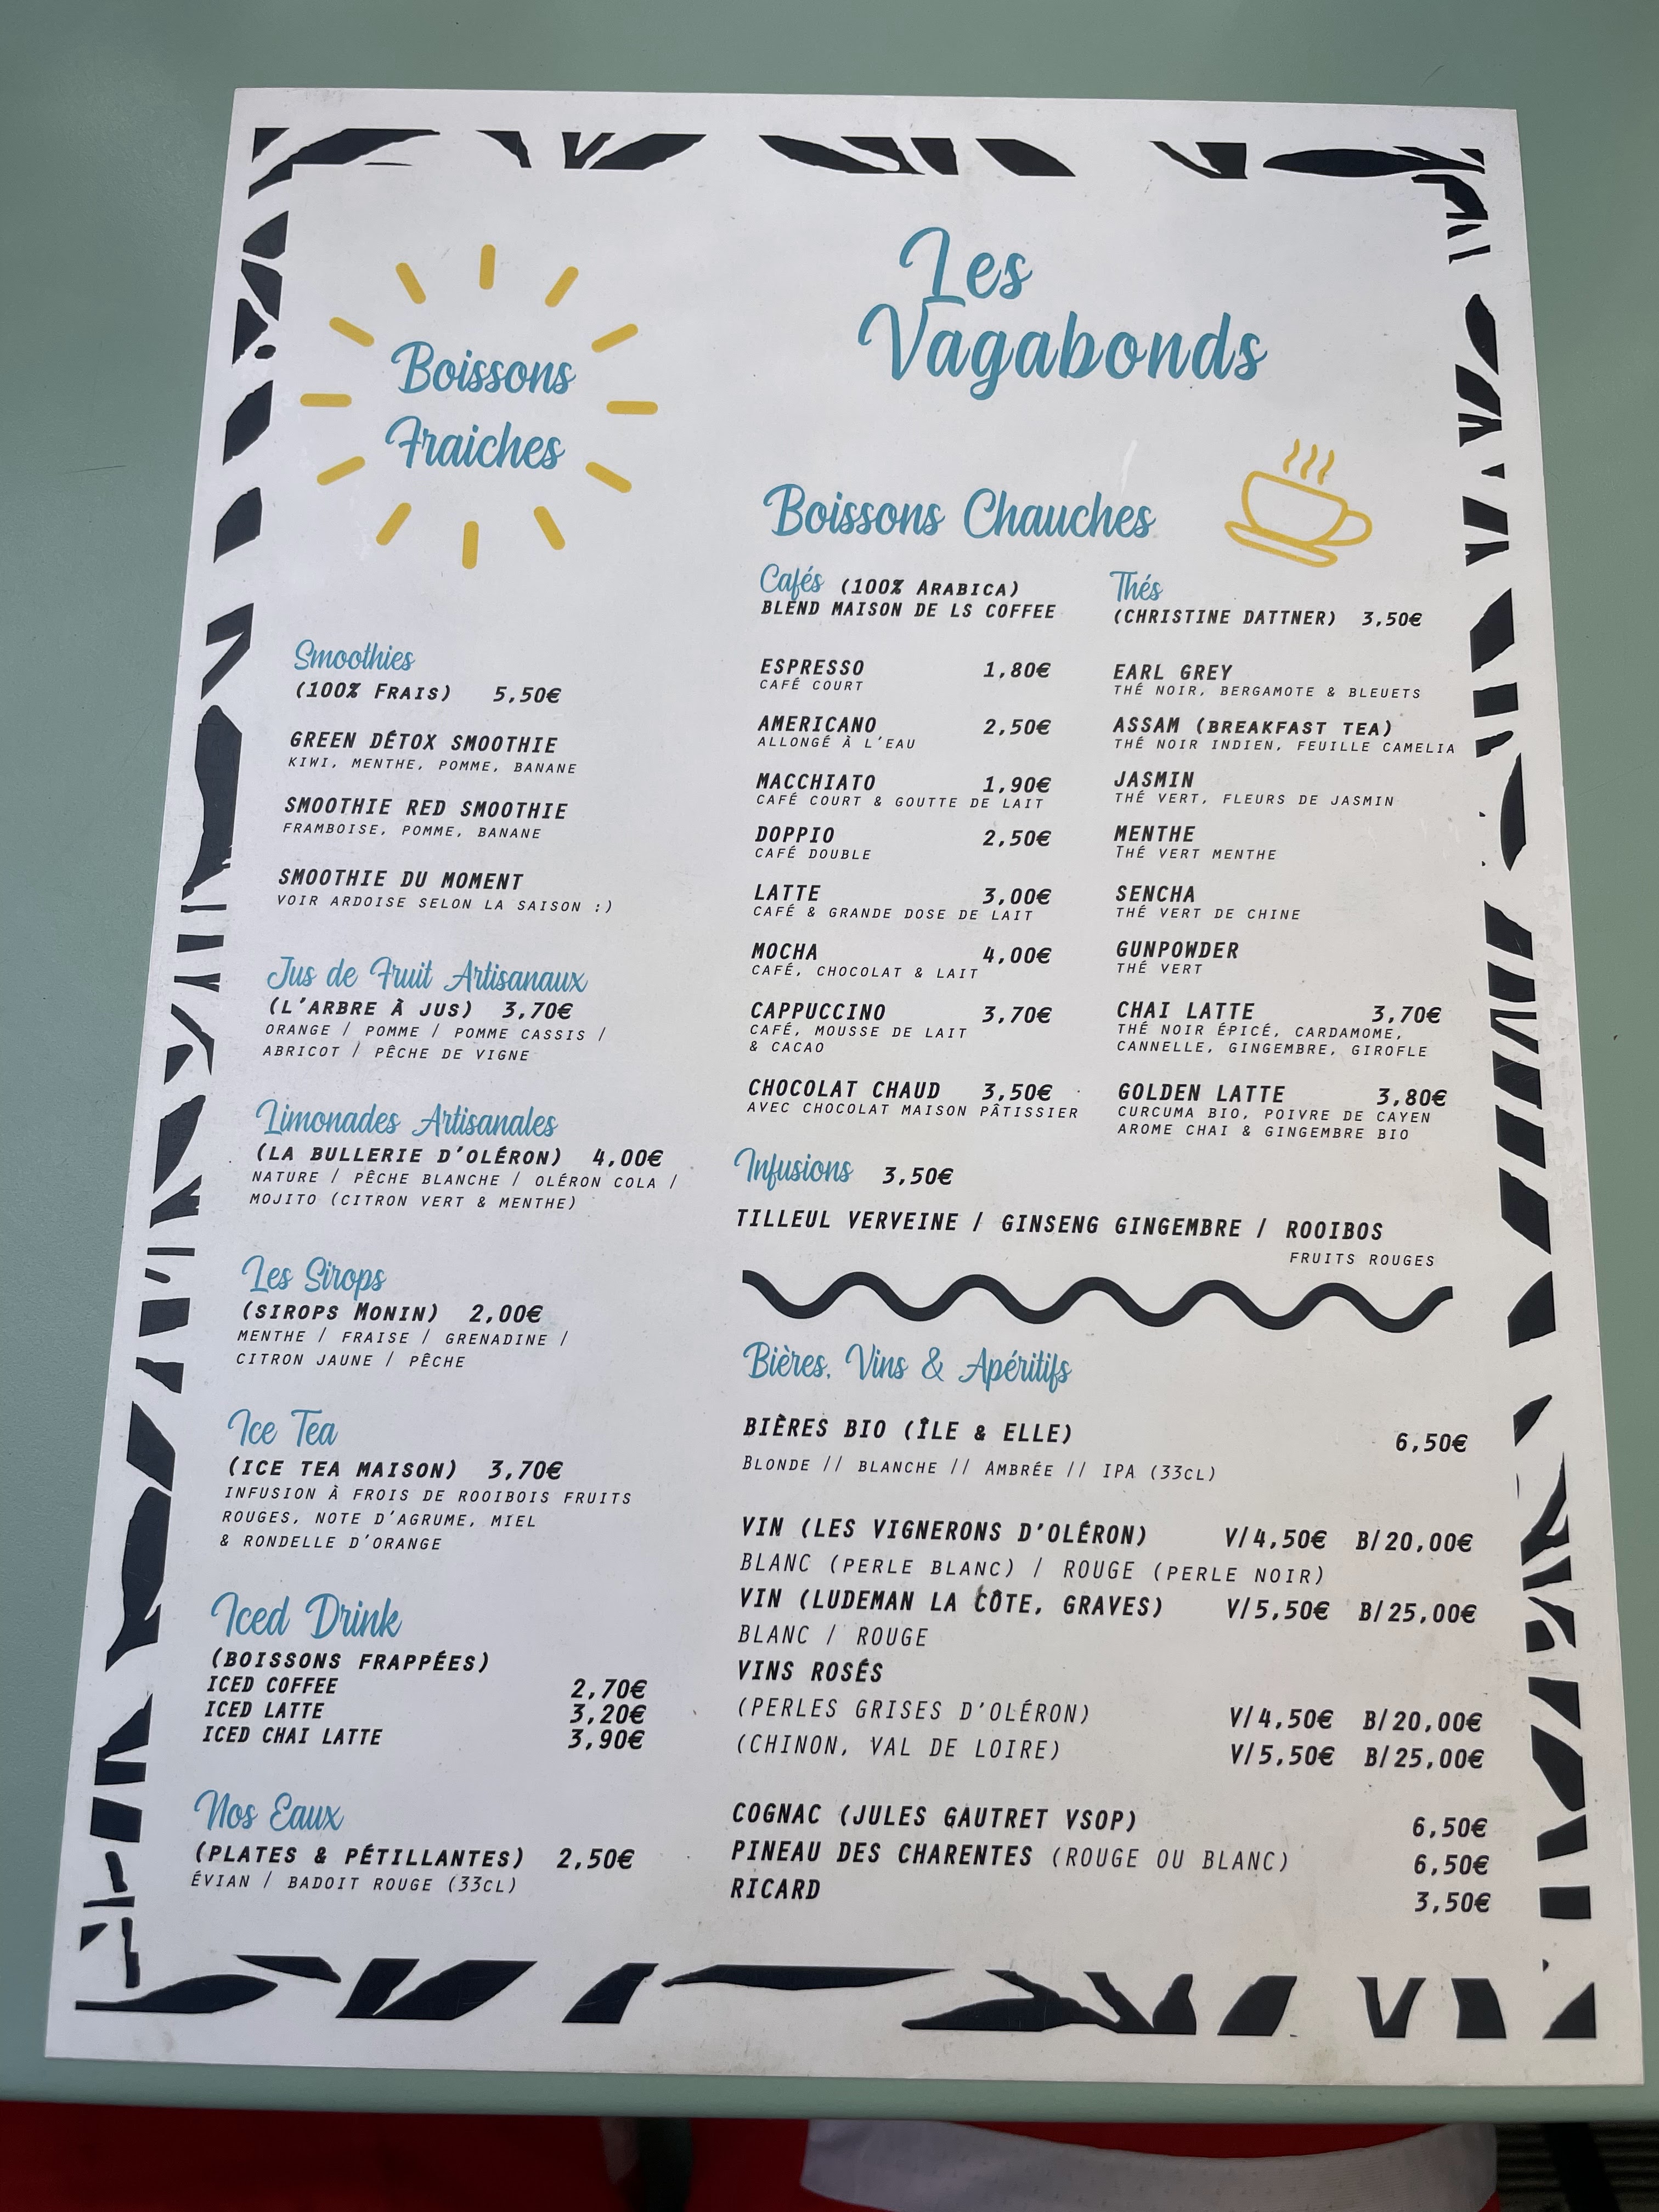 Boissons
Fraiches
Smoothies
(100% FRAIS) 5,50€
GREEN DÉTOX SMOOTHIE
KIWI, MENTHE, POMME, BANANE
SMOOTHIE RED SMOOTHIE
FRAMBOISE, POMME, BANANE
SMOOTHIE DU MOMENT
VOIR ARDOISE SELON LA SAISON :)
Jus de Fruit Artisanaux
(L'ARBRE À JUS) 3,70€
ORANGE / POMME / POMME CASSIS /
ABRICOT / PÊCHE DE VIGNE
Limonades Artisanales
(LA BULLERIE D'OLÉRON) 4,00€
NATURE / PÊCHE BLANCHE / OLÉRON COLA /
MOJITO (CITRON VERT & MENTHE)
Les Sirops
(SIROPS MONIN) 2,00€
MENTHE / FRAISE / GRENADINE /
CITRON JAUNE / PÊCHE
Ice Tea
(ICE TEA MAISON) 3,70€
INFUSION À FROIS DE ROOIBOIS FRUITS
ROUGES, NOTE D'AGRUME, MIEL
& RONDELLE D'ORANGE
Iced Drink
(BOISSONS FRAPPÉES)
ICED COFFEE 2,70€
ICED LATTE 3,20€
ICED CHAI LATTE 3,90€
Nos Eaux
(PLATES & PÉTILLANTES) 2,50€
ÉVIAN / BADOIT ROUGE (33CL)
Les
Vagabonds
Boissons Chauches
Cafés (100% ARABICA)
BLEND MAISON DE LS COFFEE
ESPRESSO 1,80€
CAFÉ COURT
AMERICANO 2,50€
ALLONGÉ À L'EAU
MACCHIATO 1,90€
CAFÉ COURT & GOUTTE DE LAIT
DOPPIO 2,50€
CAFÉ DOUBLE
LATTE 3,00€
CAFÉ & GRANDE DOSE DE LAIT
MOCHA 4,00€
CAFÉ, CHOCOLAT & LAIT
CAPPUCCINO 3,70€
CAFÉ, MOUSSE DE LAIT
& CACAO
CHOCOLAT CHAUD 3,50€
AVEC CHOCOLAT MAISON PÂTISSIER
Thés
(CHRISTINE DATTNER) 3,50€
EARL GREY
THÉ NOIR, BERGAMOTE & BLEUETS
ASSAM (BREAKFAST TEA)
THÉ NOIR INDIEN, FEUILLE CAMELIA
JASMIN
THÉ VERT, FLEURS DE JASMIN
MENTHE
THÉ VERT MENTHE
SENCHA
THÉ VERT DE CHINE
GUNPOWDER
THÉ VERT
CHAI LATTE 3,70€
THÉ NOIR ÉPICÉ, CARDAMOME,
CANNELLE, GINGEMBRE, GIROFLE
GOLDEN LATTE 3,80€
CURCUMA BIO, POIVRE DE CAYEN
AROME CHAI & GINGEMBRE BIO
Infusions 3,50€
TILLEUL VERVEINE / GINSENG GINGEMBRE / ROOIBOS
FRUITS ROUGES
Bières, Vins & Apéritifs
BIÈRES BIO (ÎLE & ELLE) 6,50€
BLONDE // BLANCHE // AMBRÉE // IPA (33CL)
VIN (LES VIGNERONS D'OLÉRON) V/4,50€ B/20,00€
BLANC (PERLE BLANC) / ROUGE (PERLE NOIR)
VIN (LUDEMAN LA CÔTE, GRAVES) V/5,50€ B/25,00€
BLANC / ROUGE
VINS ROSÉS
(PERLES GRISES D'OLÉRON) V/4,50€ B/20,00€
(CHINON, VAL DE LOIRE) V/5,50€ B/25,00€
COGNAC (JULES GAUTRET VSOP) 6,50€
PINEAU DES CHARENTES (ROUGE OU BLANC) 6,50€
RICARD 3,50€